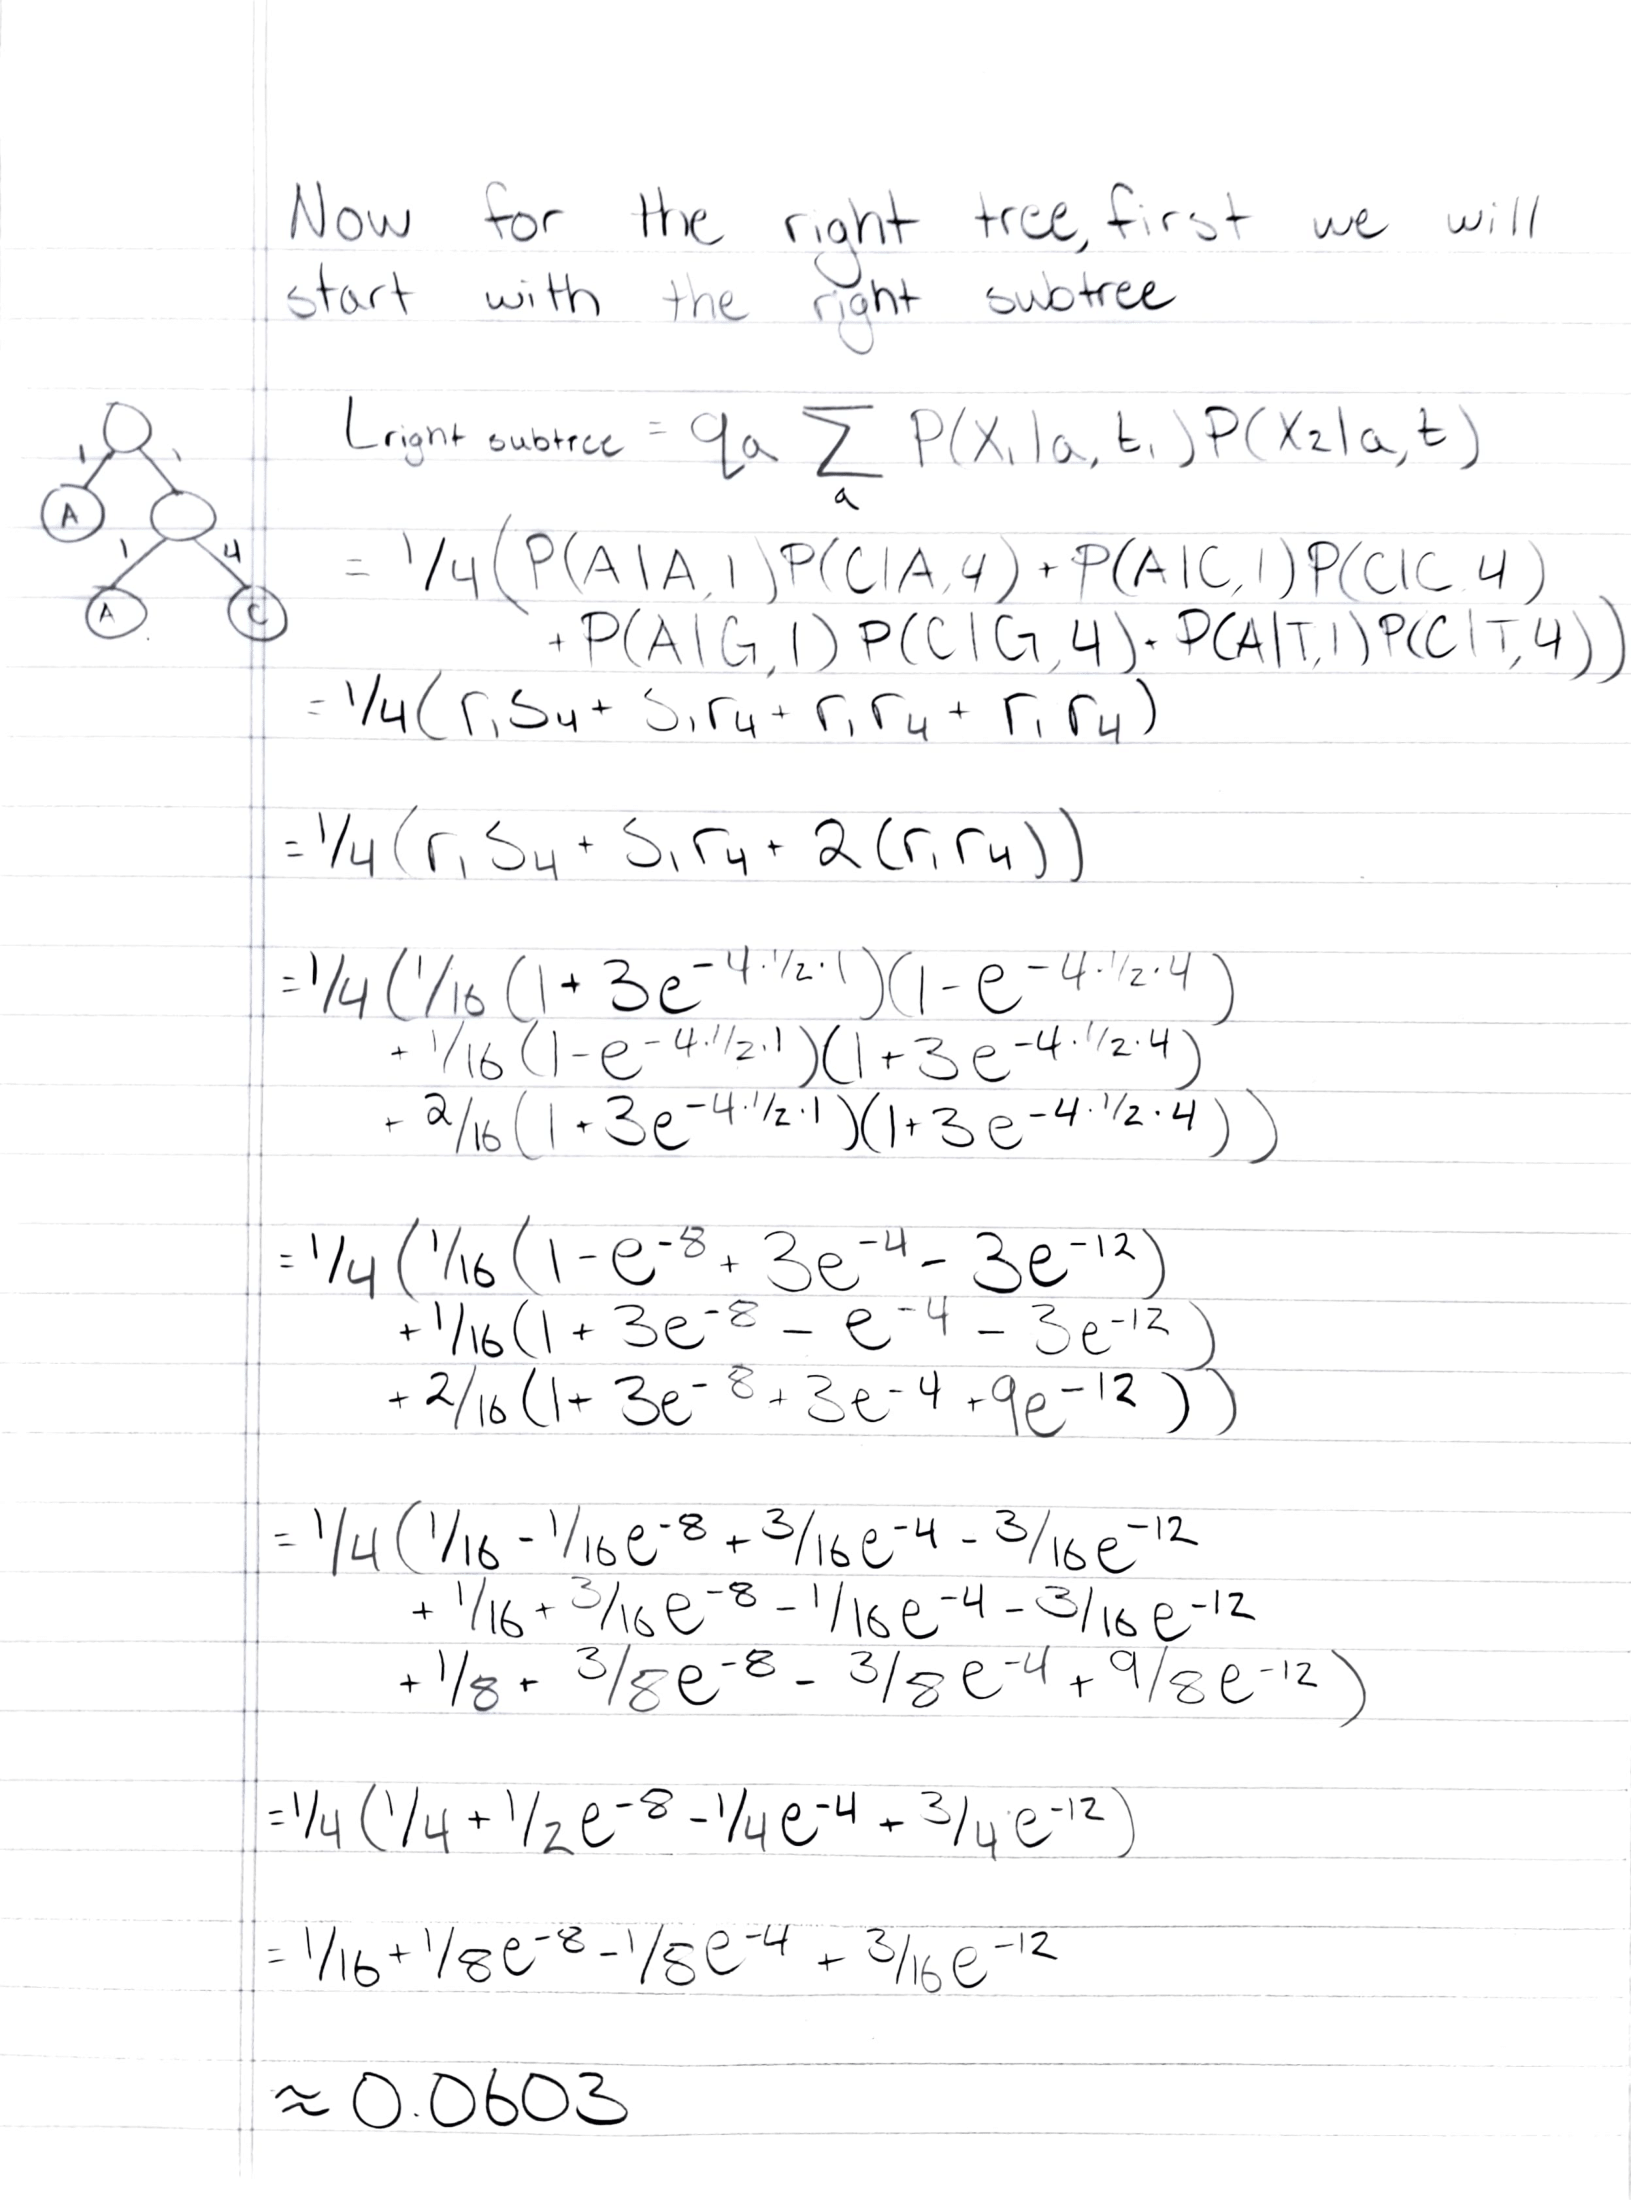 Now for the right tree, first we will
start with the right subtree
L right subtree = qa Σ P(X₁|a, t₁)P(X₂|a, t)
a
1 1
A
1 4
A C
= 1/4(P(A|A,1)P(C|A,4) + P(A|C,1)P(C|C,4)
+ P(A|G,1)P(C|G,4) · P(A|T,1)P(C|T,4))
= 1/4(r₁s₄ + s₁r₄ + r₁r₄ + r₁r₄)
= 1/4(r₁s₄ + s₁r₄ + 2(r₁r₄))
= 1/4(1/16(1 + 3e^-4·1/2·1)(1 - e^-4·1/2·4)
+ 1/16(1 - e^-4·1/2·1)(1 + 3e^-4·1/2·4)
+ 2/16(1 + 3e^-4·1/2·1)(1 + 3e^-4·1/2·4))
= 1/4(1/16(1 - e^-8 + 3e^-4 - 3e^-12)
+ 1/16(1 + 3e^-8 - e^-4 - 3e^-12)
+ 2/16(1 + 3e^-8 + 3e^-4 + 9e^-12))
= 1/4(1/16 - 1/16e^-8 + 3/16e^-4 - 3/16e^-12
+ 1/16 + 3/16e^-8 - 1/16e^-4 - 3/16e^-12
+ 1/8 + 3/8e^-8 - 3/8e^-4 + 9/8e^-12)
= 1/4(1/4 + 1/2e^-8 - 1/4e^-4 + 3/4e^-12)
= 1/16 + 1/8e^-8 - 1/8e^-4 + 3/16e^-12
≈ 0.0603